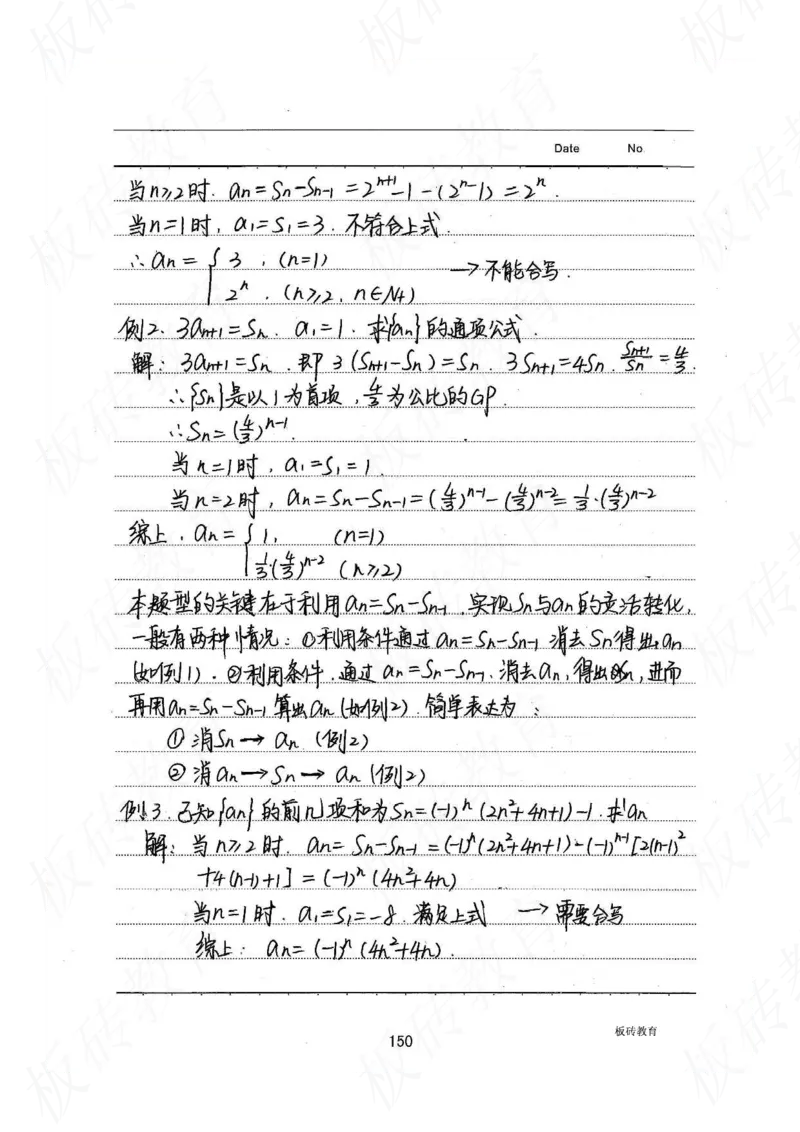 Date No.
当n≥2时. an=Sn-Sn-1=2^{n+1}-1-(2^n-1)=2^n.
当n=1时, a1=S1=3. 不符合上式.
∴an={3, (n=1) →不能合写.
2^n. (n≥2, n∈N+)
例2. 3an+1=Sn. a1=1. 求{an}的通项公式.
解: 3an+1=Sn. 即3(Sn+1-Sn)=Sn. 3Sn+1=4Sn. Sn+1/Sn=4/3.
∴{Sn}是以1为首项, 4/3为公比的GP.
∴Sn=(4/3)^{n-1}.
当n=1时, a1=S1=1.
当n=2时, an=Sn-Sn-1=(4/3)^{n-1}-(4/3)^{n-2}=1/3·(4/3)^{n-2}
综上, an={1, (n=1)
1/3(4/3)^{n-2} (n≥2)
本题型的关键在于利用an=Sn-Sn-1, 实现Sn与an的灵活转化,
一般有两种情况: ①利用条件通过an=Sn-Sn-1消去Sn得出an
(如例1). ②利用条件, 通过an=Sn-Sn-1, 消去an, 得出Sn, 进而
再用an=Sn-Sn-1算出an(如例2). 简单表达为:
①消Sn→an (例2)
②消an→Sn→an (例2)
例3. 已知{an}的前几项和为Sn=(-1)^n(2n²+4n+1)-1. 求an
解: 当n≥2时. an=Sn-Sn-1=(-1)^n(2n²+4n+1)-(-1)^{n-1}[2(n-1)²
+4(n-1)+1]=(-1)^n(4n²+4n)
当n=1时. a1=S1=-8. 满足上式 →需要合写
综上: an=(-1)^n(4n²+4n).
150
板砖教育